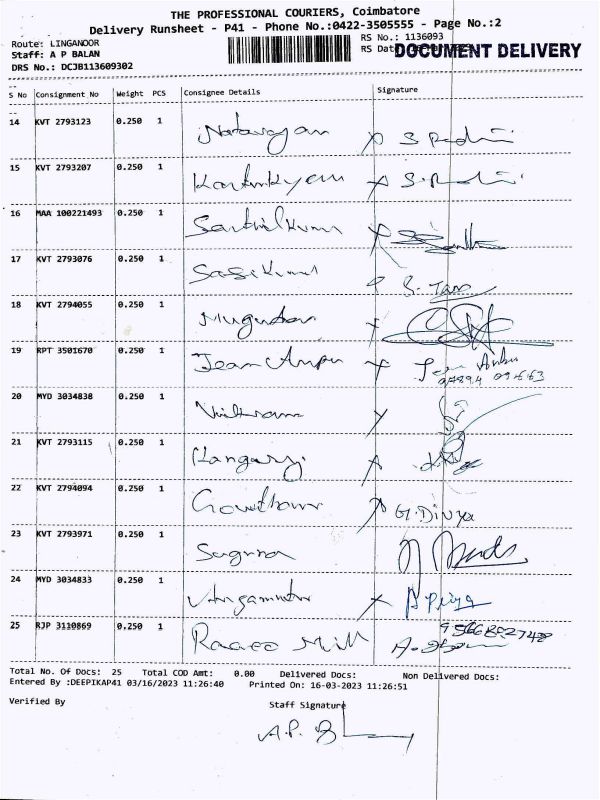 THE PROFESSIONAL COURIERS, Coimbatore
Delivery Runsheet - P41 - Phone No.:0422-3505555 - Page No.:2
Route: LINGANOOR
RS No.: 1136093
Staff: A P BALAN
RS Dat
DOCUMENT DELIVERY
DRS No.: DCJB113609302
S No Consignment No Weight PCS Consignee Details Signature
14 KVT 2793123 0.250 1 Natarajan
15 KVT 2793207 0.250 1
16 MAA 100221493 0.250 1 Senthilkumar
17 KVT 2793076 0.250 1 Sasikumar
18 KVT 2794055 0.250 1
19 RPT 3501670 0.250 1 Jean
20 MYD 3034838 0.250 1 Vikram
21 KVT 2793115 0.250 1
22 KVT 2794094 0.250 1 Gowtham G. Divya
23 KVT 2793971 0.250 1 Suguna
24 MYD 3034833 0.250 1 Priya
25 RJP 3110869 0.250 1 Mill
Total No. Of Docs: 25 Total COD Amt: 0.00 Delivered Docs: Non Delivered Docs:
Entered By :DEEPIKAP41 03/16/2023 11:26:40 Printed On: 16-03-2023 11:26:51
Verified By Staff Signature
A.P.